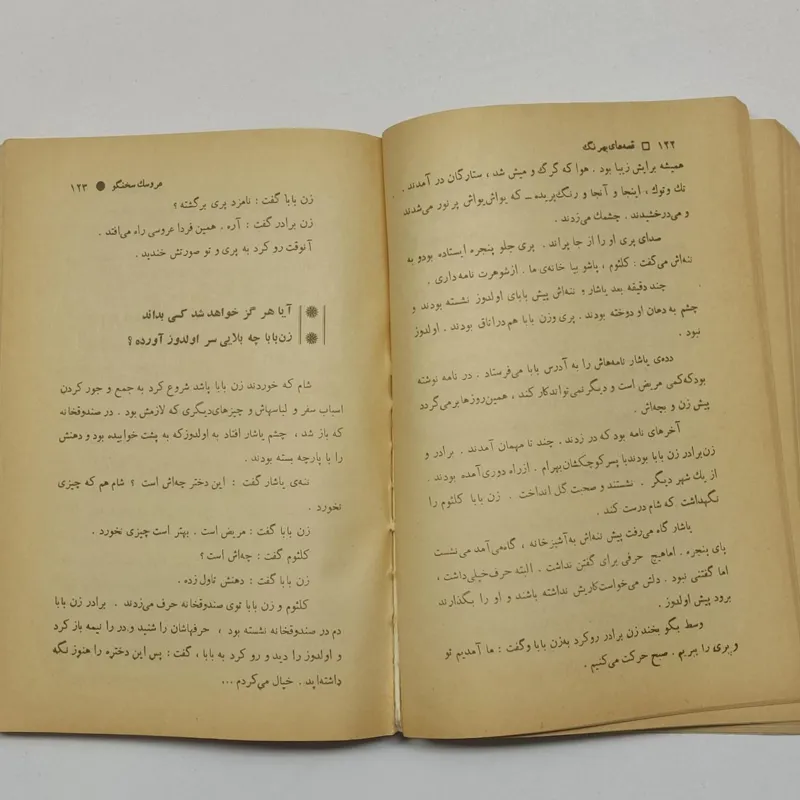 ۱۲۲ □ قصه‌های بهرنگ
همیشه برایش زیبا بود . هوا که گرگ و میش شد ، ستارگان در آمدند .
تك وتوك ، اینجا و آنجا و رنگ‌پریده ــ که یواش‌یواش پر نور می‌شدند
و می‌درخشیدند . چشمك می‌زدند .
صدای پری او را از جا پراند . پری جلو پنجره ایستاده بودو به
ننه‌اش می‌گفت : کلثوم ، پاشو بیا خانه‌ی ما . ازشوهرت نامه داری .
چند دقیقه بعد یاشار و ننه‌اش پیش بابای اولدوز نشسته بودند و
چشم به دهان او دوخته بودند . پری وزن بابا هم دراتاق بودند . اولدوز
نبود .
دده‌ی یاشار نامه‌هاش را به آدرس بابا می‌فرستاد . در نامه نوشته
بودکه‌کمی مریض است و دیگر نمی‌تواندکار کند ، همین‌روزها برمی‌گردد
پیش زن و بچه‌اش .
آخرهای نامه بود که در زدند . چند تا مهمان آمدند . برادر و
زن‌برادر زن بابا بودندبا پسرکوچکشان‌بهرام . ازراه دوری‌آمده بودند .
از یك شهر دیگر . نشستند و صحبت گل انداخت . زن بابا کلثوم را
نگهداشت که شام درست کند .
یاشار گاه می‌رفت پیش ننه‌اش به‌آشپزخانه ، گاه‌می‌آمد می‌نشست
پای پنجره . اماهیچ حرفی برای گفتن نداشت . البته حرف‌خیلی‌داشت ،
اما گفتنی نبود . دلش می‌خواست‌کاریش نداشته باشند و او را بگذارند
برود پیش اولدوز .
وسط بگو بخند زن برادر روکرد به‌زن بابا وگفت : ما آمدیم تو
و پری را ببریم . صبح حرکت می‌کنیم .
عروسك سخنگو ● ۱۲۳
زن بابا گفت : نامزد پری برگشته ؟
زن برادر گفت : آره . همین فردا عروسی راه می‌افتد .
آنوقت رو کرد به پری و تو صورتش خندید .
آیا هر گز خواهد شد کسی بداند
زن‌بابا چه بلایی سر اولدوز آورده ؟
شام که خوردند زن بابا پاشد شروع کرد به جمع و جور کردن
اسباب سفر و لباسهاش و چیزهای‌دیگری که لازمش بود . در صندوقخانه
که باز شد ، چشم یاشار افتاد به اولدوزکه به پشت خوابیده بود و دهنش
را با پارچه بسته بودند .
ننه‌ی یاشار گفت : این دختر چه‌اش است ؟ شام هم که چیزی
نخورد .
زن بابا گفت : مریض است . بهتر است چیزی نخورد .
کلثوم گفت : چه‌اش است ؟
زن بابا گفت : دهنش تاول زده .
کلثوم و زن بابا توی صندوقخانه حرف می‌زدند . برادر زن بابا
دم در صندوقخانه نشسته بود ، حرفهاشان را شنید و در را نیمه باز کرد
و اولدوز را دید و رو کرد به بابا ، گفت : پس این دختره را هنوز نگه
داشته‌اید . خیال می‌کردم ...